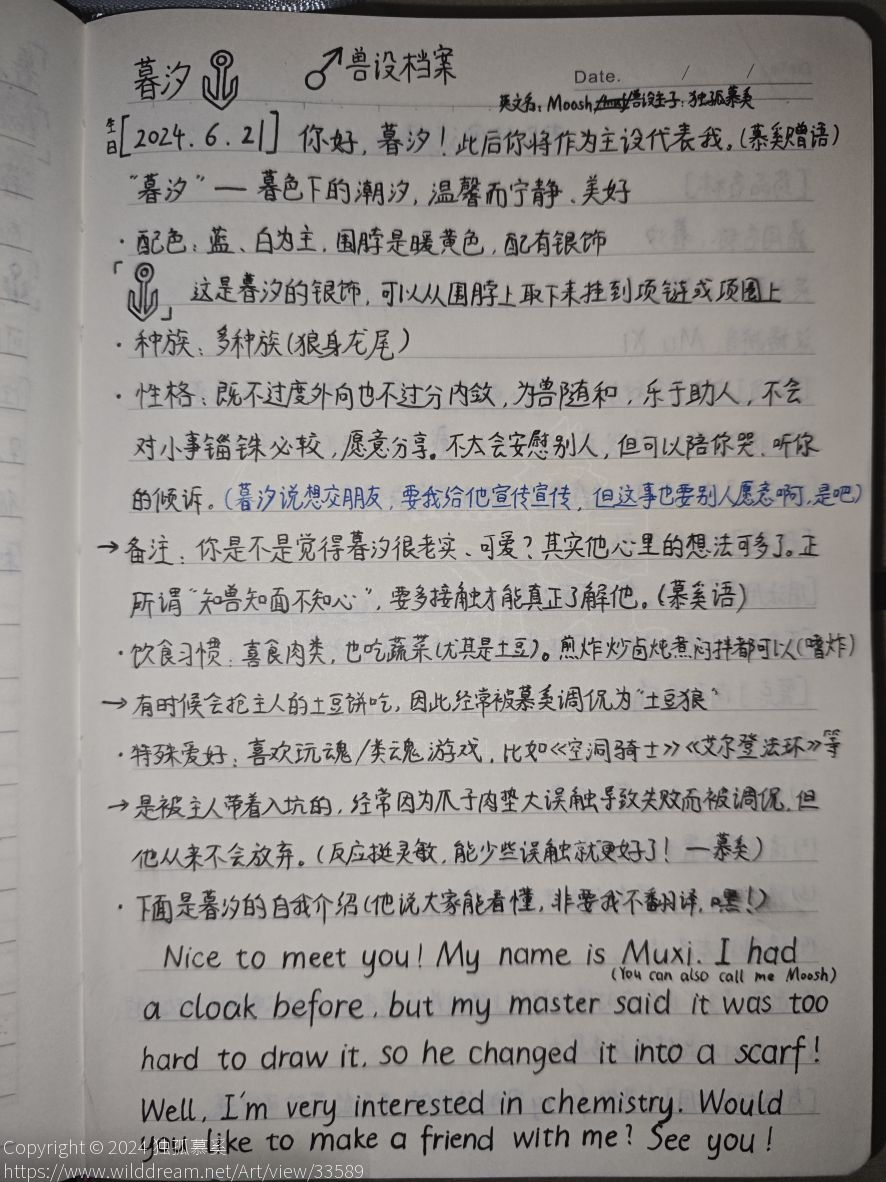 暮汐 ♂兽设档案
Date. / /
英文名：Moosh 兽设主子：独孤慕奚
生日[2024.6.21] 你好，暮汐！此后你将作为主设代表我。(慕奚赠语)
“暮汐”— 暮色下的潮汐，温馨而宁静、美好
·配色：蓝、白为主，围脖是暖黄色，配有银饰
「 」这是暮汐的银饰，可以从围脖上取下来挂到项链或项圈上
·种族：多种族(狼身龙尾)
·性格：既不过度外向也不过分内敛，为兽随和，乐于助人，不会
对小事锱铢必较，愿意分享。不太会安慰别人，但可以陪你哭、听你
的倾诉。(暮汐说想交朋友，要我给他宣传宣传，但这事也要别人愿意啊，是吧)
→备注：你是不是觉得暮汐很老实、可爱？其实他心里的想法可多了。正
所谓“知兽知面不知心”，要多接触才能真正了解他。(慕奚语)
·饮食习惯：喜食肉类，也吃蔬菜(尤其是土豆)。煎炸炒卤炖煮焖拌都可以(嗜炸)
→有时候会抢主人的土豆饼吃，因此经常被慕奚调侃为“土豆狼”
·特殊爱好：喜欢玩魂/类魂游戏，比如《空洞骑士》《艾尔登法环》等
→是被主人带着入坑的，经常因为爪子肉垫大误触导致失败而被调侃，但
他从来不会放弃。(反应挺灵敏，能少些误触就更好了！—慕奚)
·下面是暮汐的自我介绍(他说大家能看懂，非要我不翻译，嘿！)
Nice to meet you! My name is Muxi. I had
(You can also call me Moosh)
a cloak before, but my master said it was too
hard to draw it, so he changed it into a scarf!
Well, I'm very interested in chemistry. Would
you like to make a friend with me? See you!
Copyright © 2024 独孤慕奚
https://www.wilddream.net/Art/view/33589